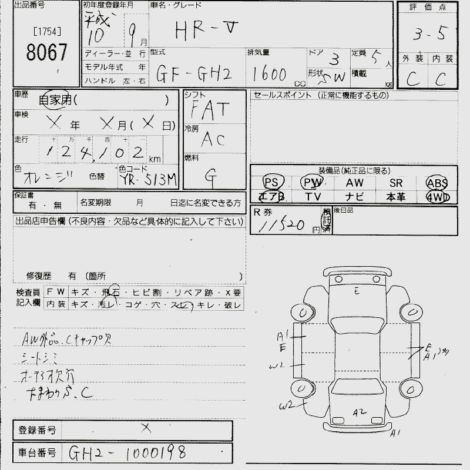 出品番号 初年度登録年月 車名・グレード 評価点
[1754] 平成 HR-V 3-5
8067 10年 9月
ディーラー・並行 型式 排気量 ドア 3 定員 5人 外装 内装
モデル年式 年 GF-GH2 1600cc 形状 SW 積載 kg C C
ハンドル 左・右
車歴 自家用( ) シフト FAT セールスポイント (正常に機能するもの)
車検 X年 X月(X日) 冷房 AC
走行 124,102km
燃料 G
色 オレンジ 色替 色コード YR-513M 装備品(純正品に限る)
PS PW AW SR ABS
エアB TV ナビ 本革 4WD
保証書 有・無 名変期限 月 日迄に名変できる方
R券 11520円 後日品
出品店申告欄 (不良内容・欠品など具体的に記入して下さい)
修復歴 有 (箇所 )
検査員記入欄 FW キズ・飛石・ヒビ割・リペア跡・X要
内装 キズ・汚レ・コゲ・穴・スレ・キレ・破レ
AW外品、Cキャップ欠
シートシミ
S.C
E
A1
E
W2
W2
E
A1
A2
登録番号 X
車台番号 GH2-1000198